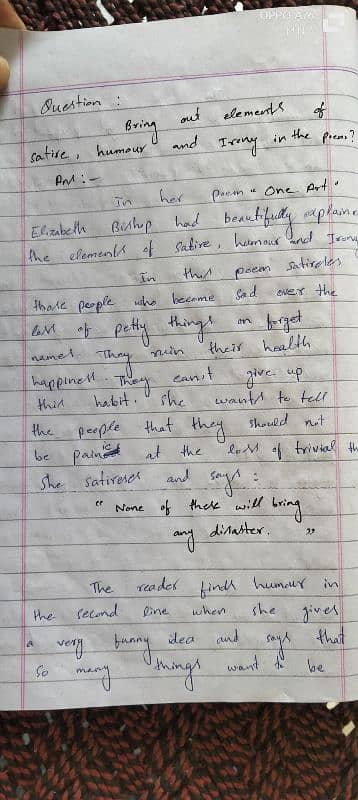 OPPO A76
Question :
Bring out elements of
satire, humour and Irony in the poem?
Ans :-
In her poem " One Art "
Elizabeth Bishop had beautifully explaine
the elements of satire, humour and Irony
In this poem satireles
those people who become sad over the
loss of petty things on forget
names. They ruin their health
happiness. They can't give up
this habit. She wants to tell
the people that they should not
be panic at the loss of trivial th
She satireses and says :
" None of these will bring
any disaster. "
The reader finds humour in
the second line when she gives
a very funny idea and says that
so many things want to be